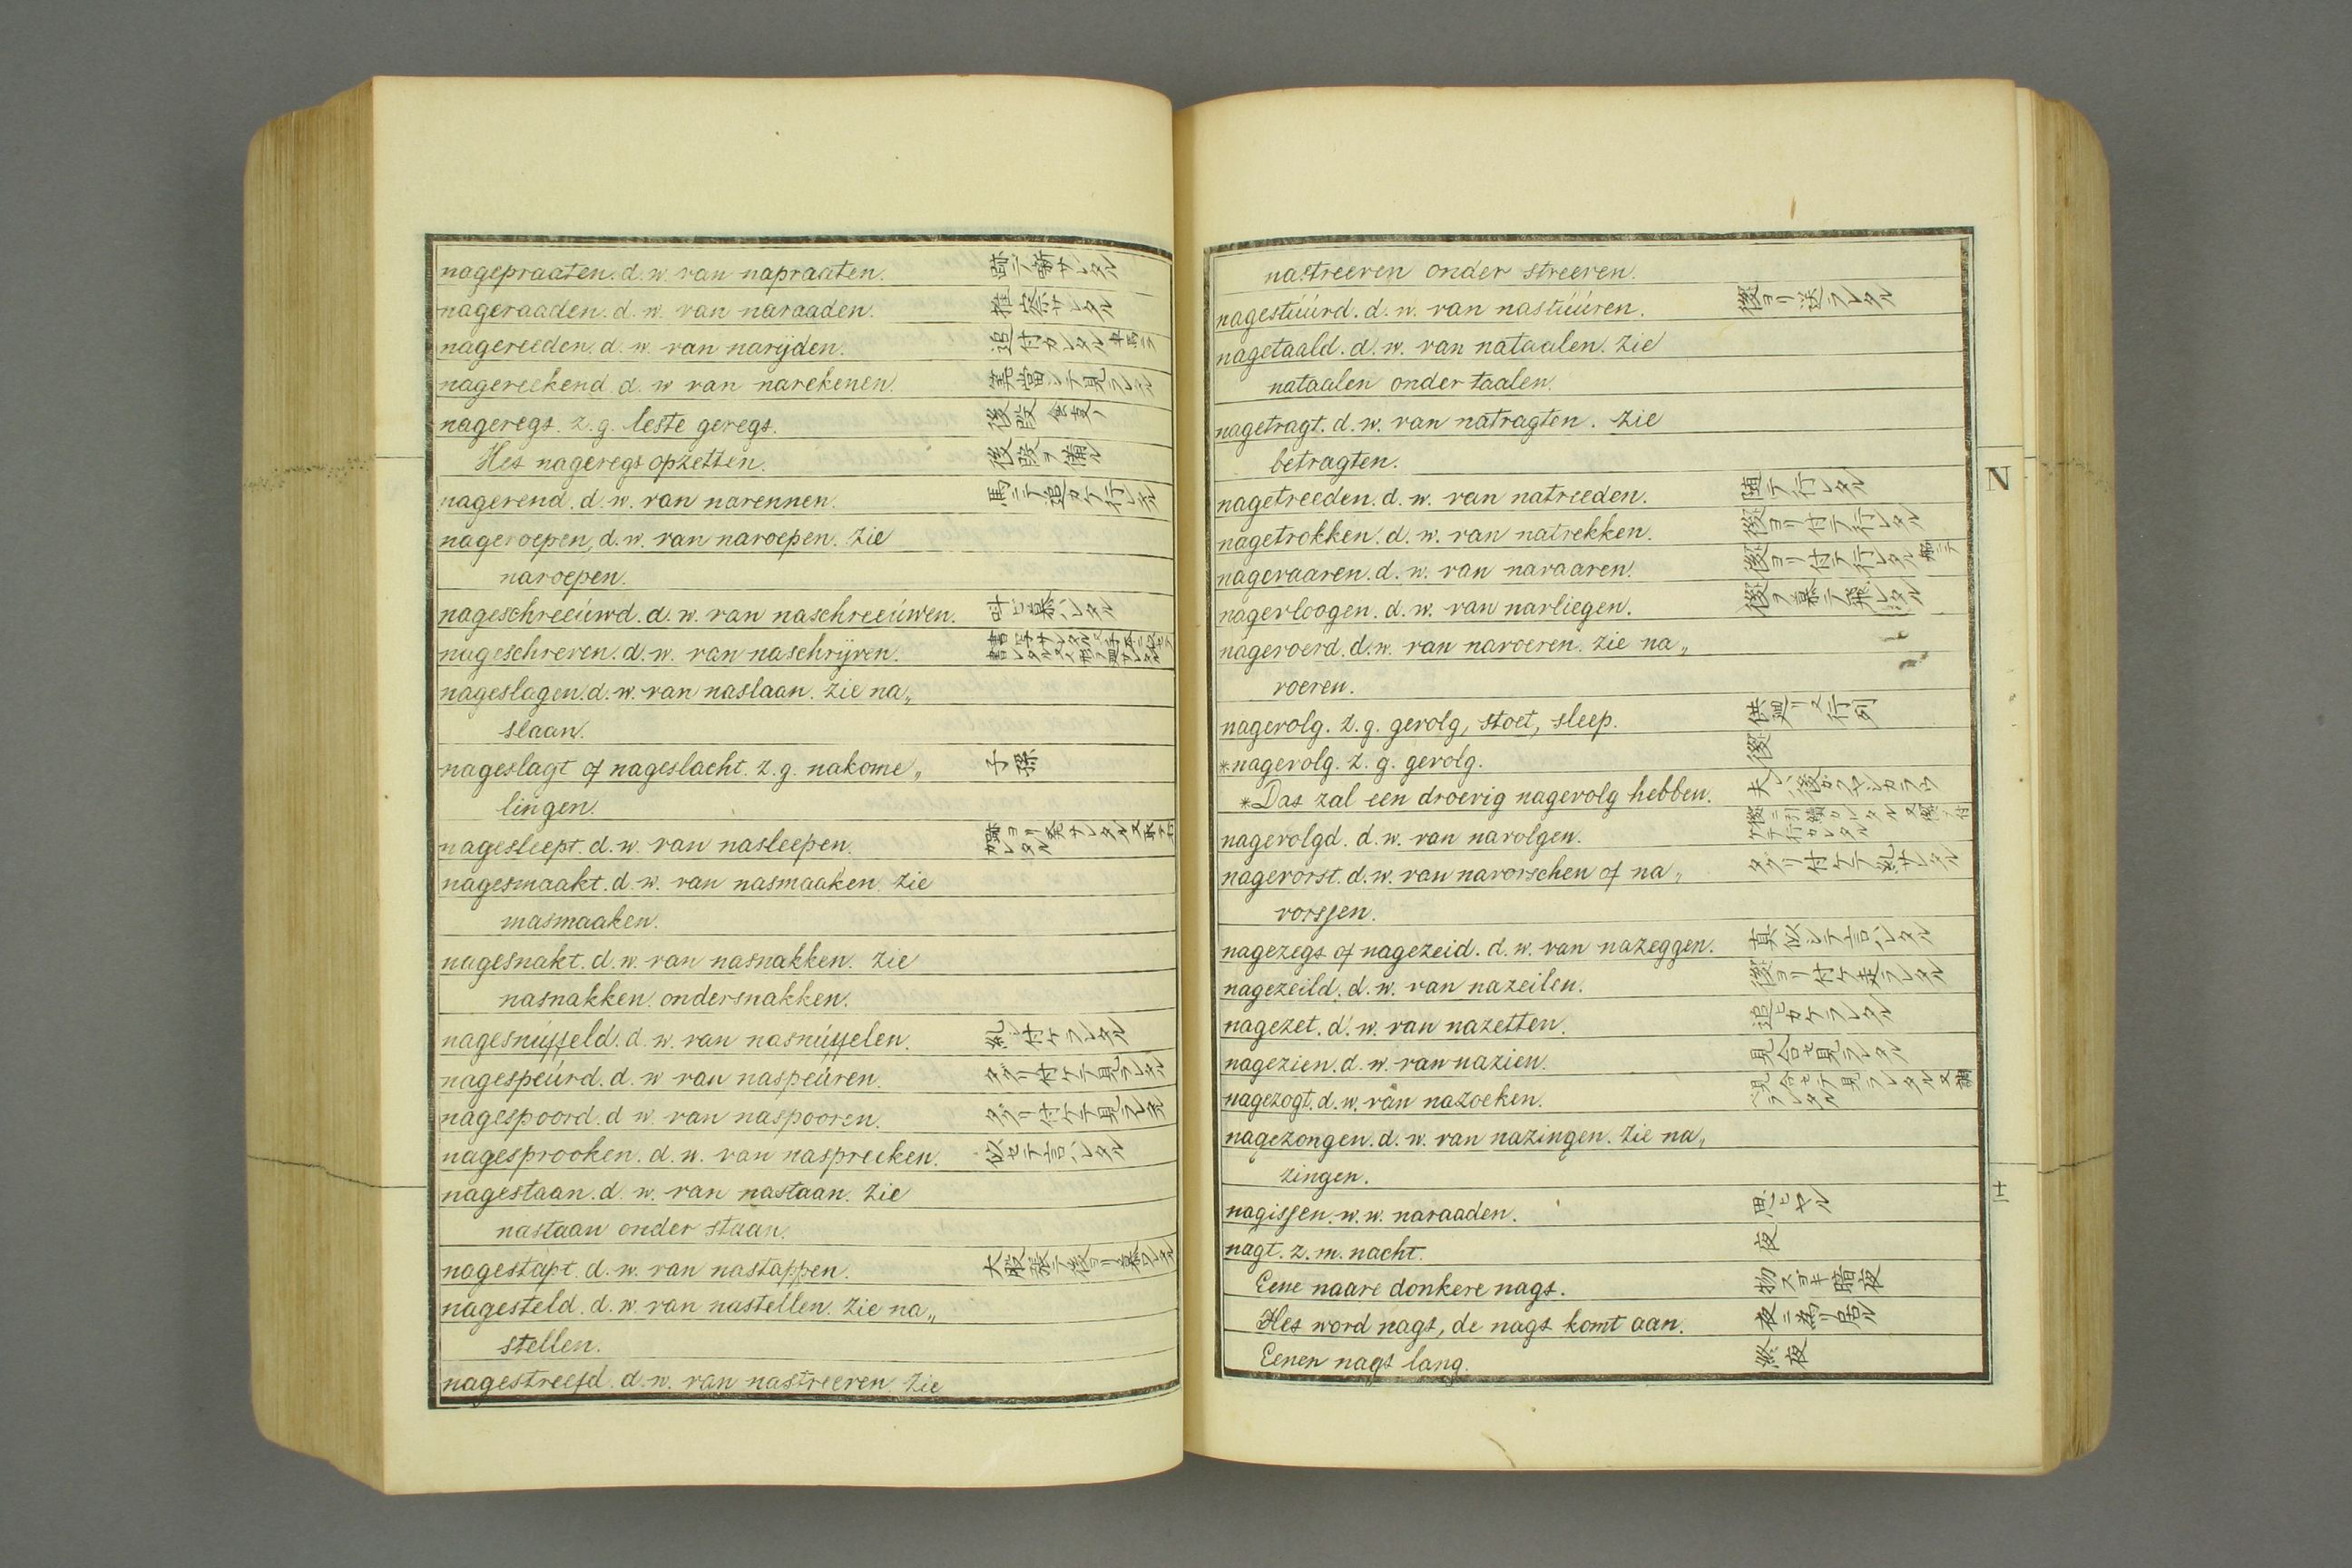 nagepraaten. d. w. van napraaten. 跡ニテ噺サレタル
nageraaden. d. w. van naraaden. 推察サレタル
nagereeden. d. w. van narijden. 追付カレタル
nagereekend. d. w van narekenen. 算當シテ見ラレタル
nageregt. z. g. leste geregt. 後段
Het nageregt opzetten. 後段ヲ備ル
nagerend. d. w. van narennen. 馬ニテ追カケ行レタル
nageroepen, d. w. van naroepen. zie
naroepen.
nageschreeúwd. d. w. van naschreeúwen. 叫ヒ慕ハレタル
nageschreven. d. w. van naschrijven.
nageslagen. d. w. van naslaan. zie na„
slaan.
nageslagt of nageslacht. z. g. nakome„ 子孫
lingen.
nagesleept. d. w. van nasleepen.
nagesmaakt. d. w. van nasmaaken zie
masmaaken.
nagesnakt. d. w. van nasnakken. zie
nasnakken. ondersnakken.
nagesnúffeld. d. w. van nasnúffelen. 糺シ付ケラレタル
nagespeúrd. d. w van naspeúren. タグリ付ケテ見ラレタル
nagespoord. d w. van naspooren. タグリ付ケテ見ラレタル
nagesprooken. d. w. van naspreeken. 似セテ言ハレタル
nagestaan. d. w. van nastaan. zie
nastaan onder staan.
nagestapt. d. w. van nastappen.
nagesteld. d. w. van nastellen. zie na„
stellen.
nagestreefd. d. w. van nastreeven zie
nastreeven onder streeven.
nagestúúrd. d. w. van nastúúren. 後ヨリ送ラレタル
nagetaald. d. w. van nataalen. zie
nataalen onder taalen.
nagetragt. d. w. van natragten. zie
betragten.
nagetreeden. d. w. van natreeden. 随テ行レタル
nagetrokken. d. w. van natrekken. 後ヨリ付テ行レタル
nagevaaren. d. w. van navaaren. 後ヨリ付テ行レタル 船ニテ
nagevloogen. d. w. van navliegen. 後ヲ慕テ飛レタル
nagevoerd. d. w. van navoeren. zie na„
voeren.
nagevolg. z. g. gevolg, stoet, sleep. 供廻リ又行列
*nagevolg. z. g. gevolg. 後
*Dat zal een droevig nagevolg hebben.
nagevolgd. d. w. van navolgen.
nagevorst. d. w. van navorschen of na„ タグリ付ケテ糺サレタル
vorssen.
nagezegt of nagezeid. d. w. van nazeggen. 真似シテ言ハレタル
nagezeild. d. w. van nazeilen. 後ヨリ付ケ走ラレタル
nagezet. d. w. van nazetten. 追ヒカケラレタル
nagezien. d. w. van nazien. 見合セ見ラレタル
nagezogt. d. w. van nazoeken. 見合セテ見ラレタル
nagezongen. d. w. van nazingen. zie na„
zingen.
nagissen. w. w. naraaden. 思ヒヤル
nagt. z. m. nacht. 夜
Eene naare donkere nagt. 物スゴキ暗夜
Het word nagt, de nagt komt aan. 夜ニ為リ居ル
Eenen nagt lang. 終夜
N